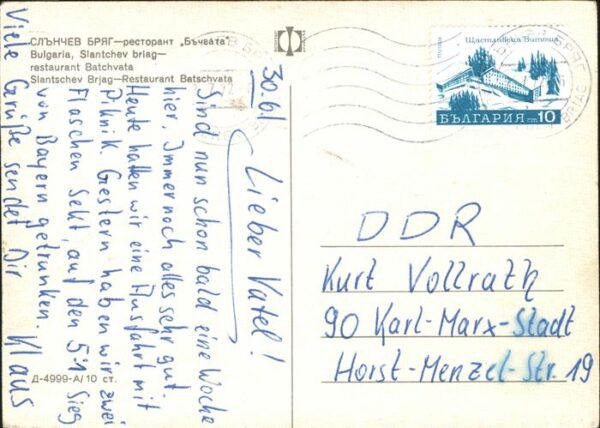 СЛЪНЧЕВ БРЯГ—ресторант „Бъчвата"
Bulgaria, Slantchev briag—
restaurant Batchvata
Slantschev Brjag—Restaurant Batschvata
30.6!
Lieber Vatel!
Sind nun schon bald eine Woche
hier. Immer noch alles sehr gut.
Heute hatten wir eine Ausfahrt mit
Piknik. Gestern haben wir zwei
Flaschen Sekt auf den 5:1 Sieg
von Bayern getrunken.
Viele Grüße sendet Dir Klaus
Д-4999-А/10 ст.
Щастливеца Витоша
поща
БЪЛГАРИЯ ст 10
БРЯГ
DDR
Kurt Vollrath
90 Karl-Marx-Stadt
Horst-Menzel-Str. 19